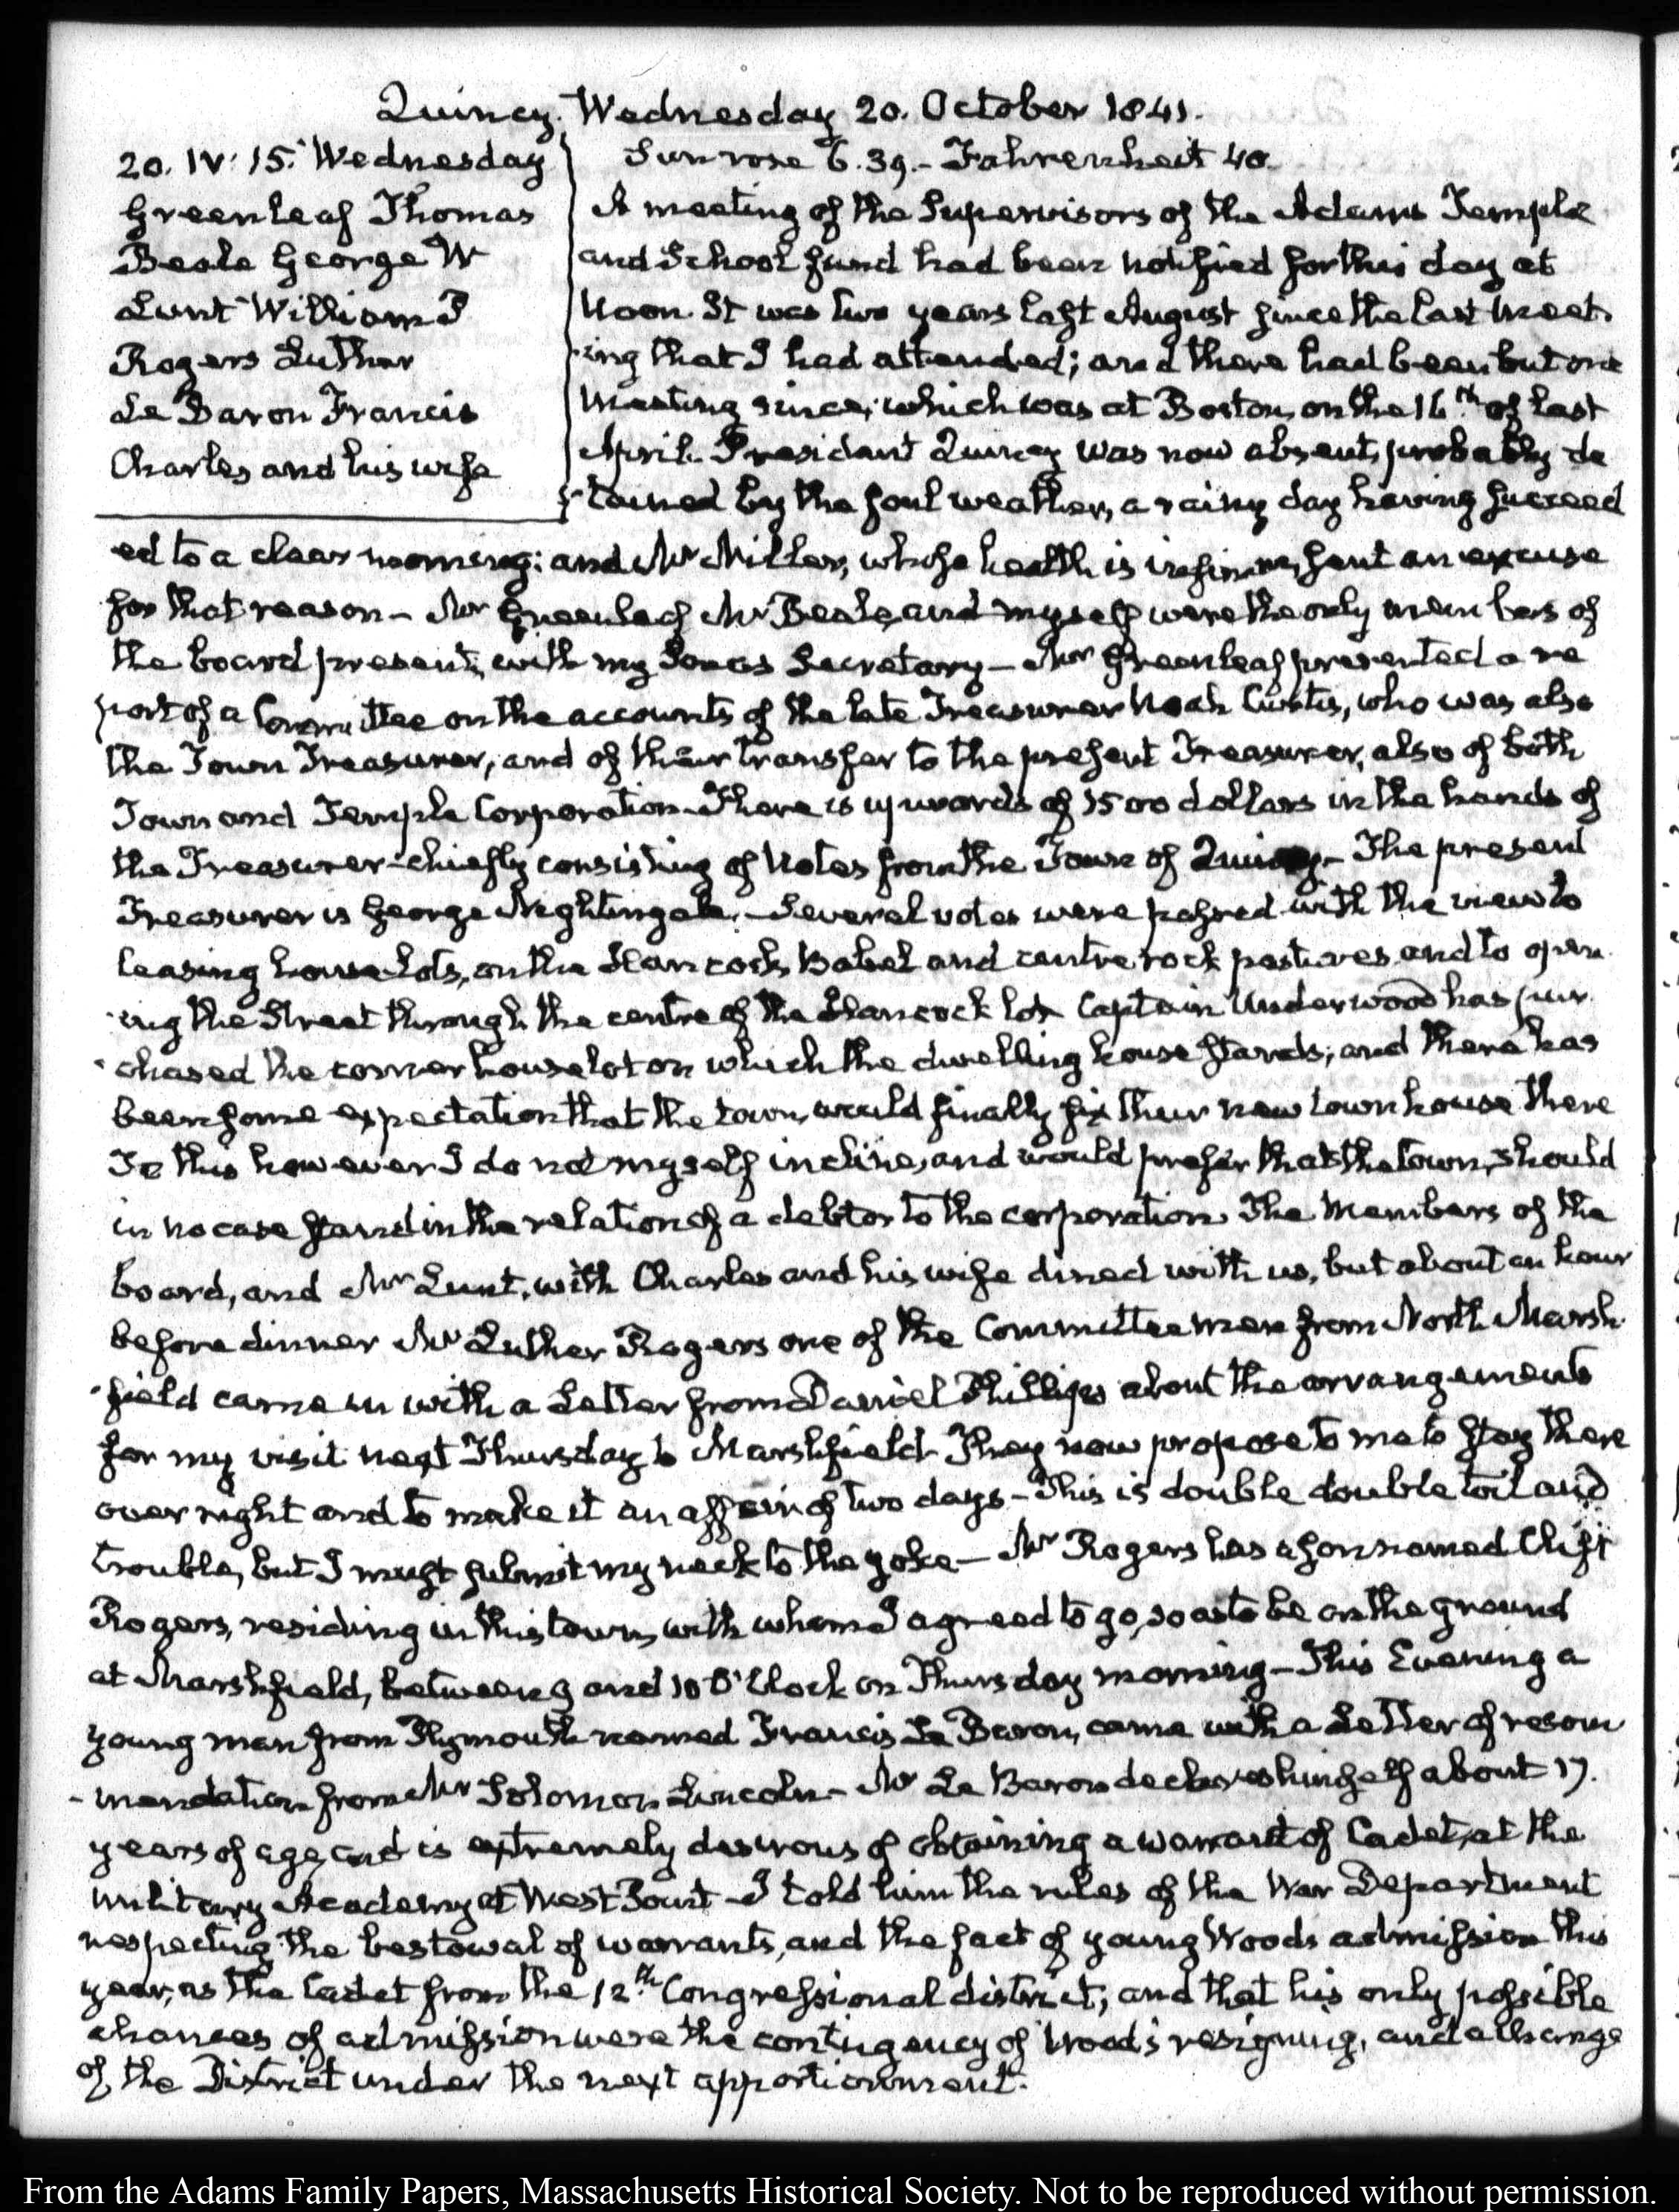 Quincy. Wednesday 20. October 1841.
20. IV: 15. Wednesday
Greenleaf Thomas
Beale George W
Lunt William P
Rogers Luther
Le Baron Francis
Charles and his wife
Sun rose 6.39.- Fahrenheit 40.
A meeting of the Supervisors of the Adams Temple
and School fund had been notified for this day at
Noon. It was two years last August since the last meet-
-ing that I had attended; and there had been but one
meeting since, which was at Boston, on the 16th of last
April. President Quincy was now absent, probably de
-tained by the foul weather, a rainy day having succeed
ed to a clear morning: and Mr Miller, whose health is infirm, sent an excuse
for that reason - Mr Greenleaf Mr Beale, and myself were the only members of
the board present, with my Son as Secretary - Mr Greenleaf presented a re
port of a Committee on the accounts of the late Treasurer Noah Curtis, who was also
the Town Treasurer, and of their transfer to the present Treasurer, also of both
Town and Temple Corporation. There is upwards of 1500 dollars in the hands of
the Treasurer - chiefly consisting of Notes from the Town of Quincy - The present
Treasurer is George Nightingale. - Several votes were passed with the view to
leasing house lots, on the Hancock, Babel and centre rock pastures, and to open
-ing the Street through the centre of the Hancock lot Captain Underwood has pur
-chased the corner house lot on which the dwelling house stands; and there has
been some expectation that the town, would finally fix their new town house there
To this however I do not myself incline, and would prefer that the town, should
in no case stand in the relation of a debtor to the corporation. The Members of the
board, and Mr Lunt, with Charles and his wife dined with us, but about an hour
before dinner Mr Luther Rogers one of the Committee men from North Marsh-
-field came in with a Letter from Daniel Phillips about the arrangements
for my visit next Thursday to Marshfield. They now propose to me to stay there
over night and to make it an affair of two days - This is double double toil and
trouble, but I must submit my neck to the yoke - Mr Rogers has a son named Clift
Rogers, residing in this town, with whom I agreed to go, so as to be on the ground
at Marshfield, between 9 and 10 O'Clock on Thursday morning - This Evening a
young man from Plymouth named Francis Le Baron, came with a Letter of recom
-mendation from Mr Solomon Lincoln - Mr Le Baron declares himself about 17.
years of age, and is extremely desirous of obtaining a warrant of Cadet, at the
military Academy at West Point - I told him the rules of the War Department
respecting the bestowal of warrants, and the fact of young Woods admission this
year, as the Cadet from the 12th Congressional district; and that his only possible
chances of admission were the contingency of Wood's resigning, and a change
of the District under the next apportionment.
From the Adams Family Papers, Massachusetts Historical Society. Not to be reproduced without permission.